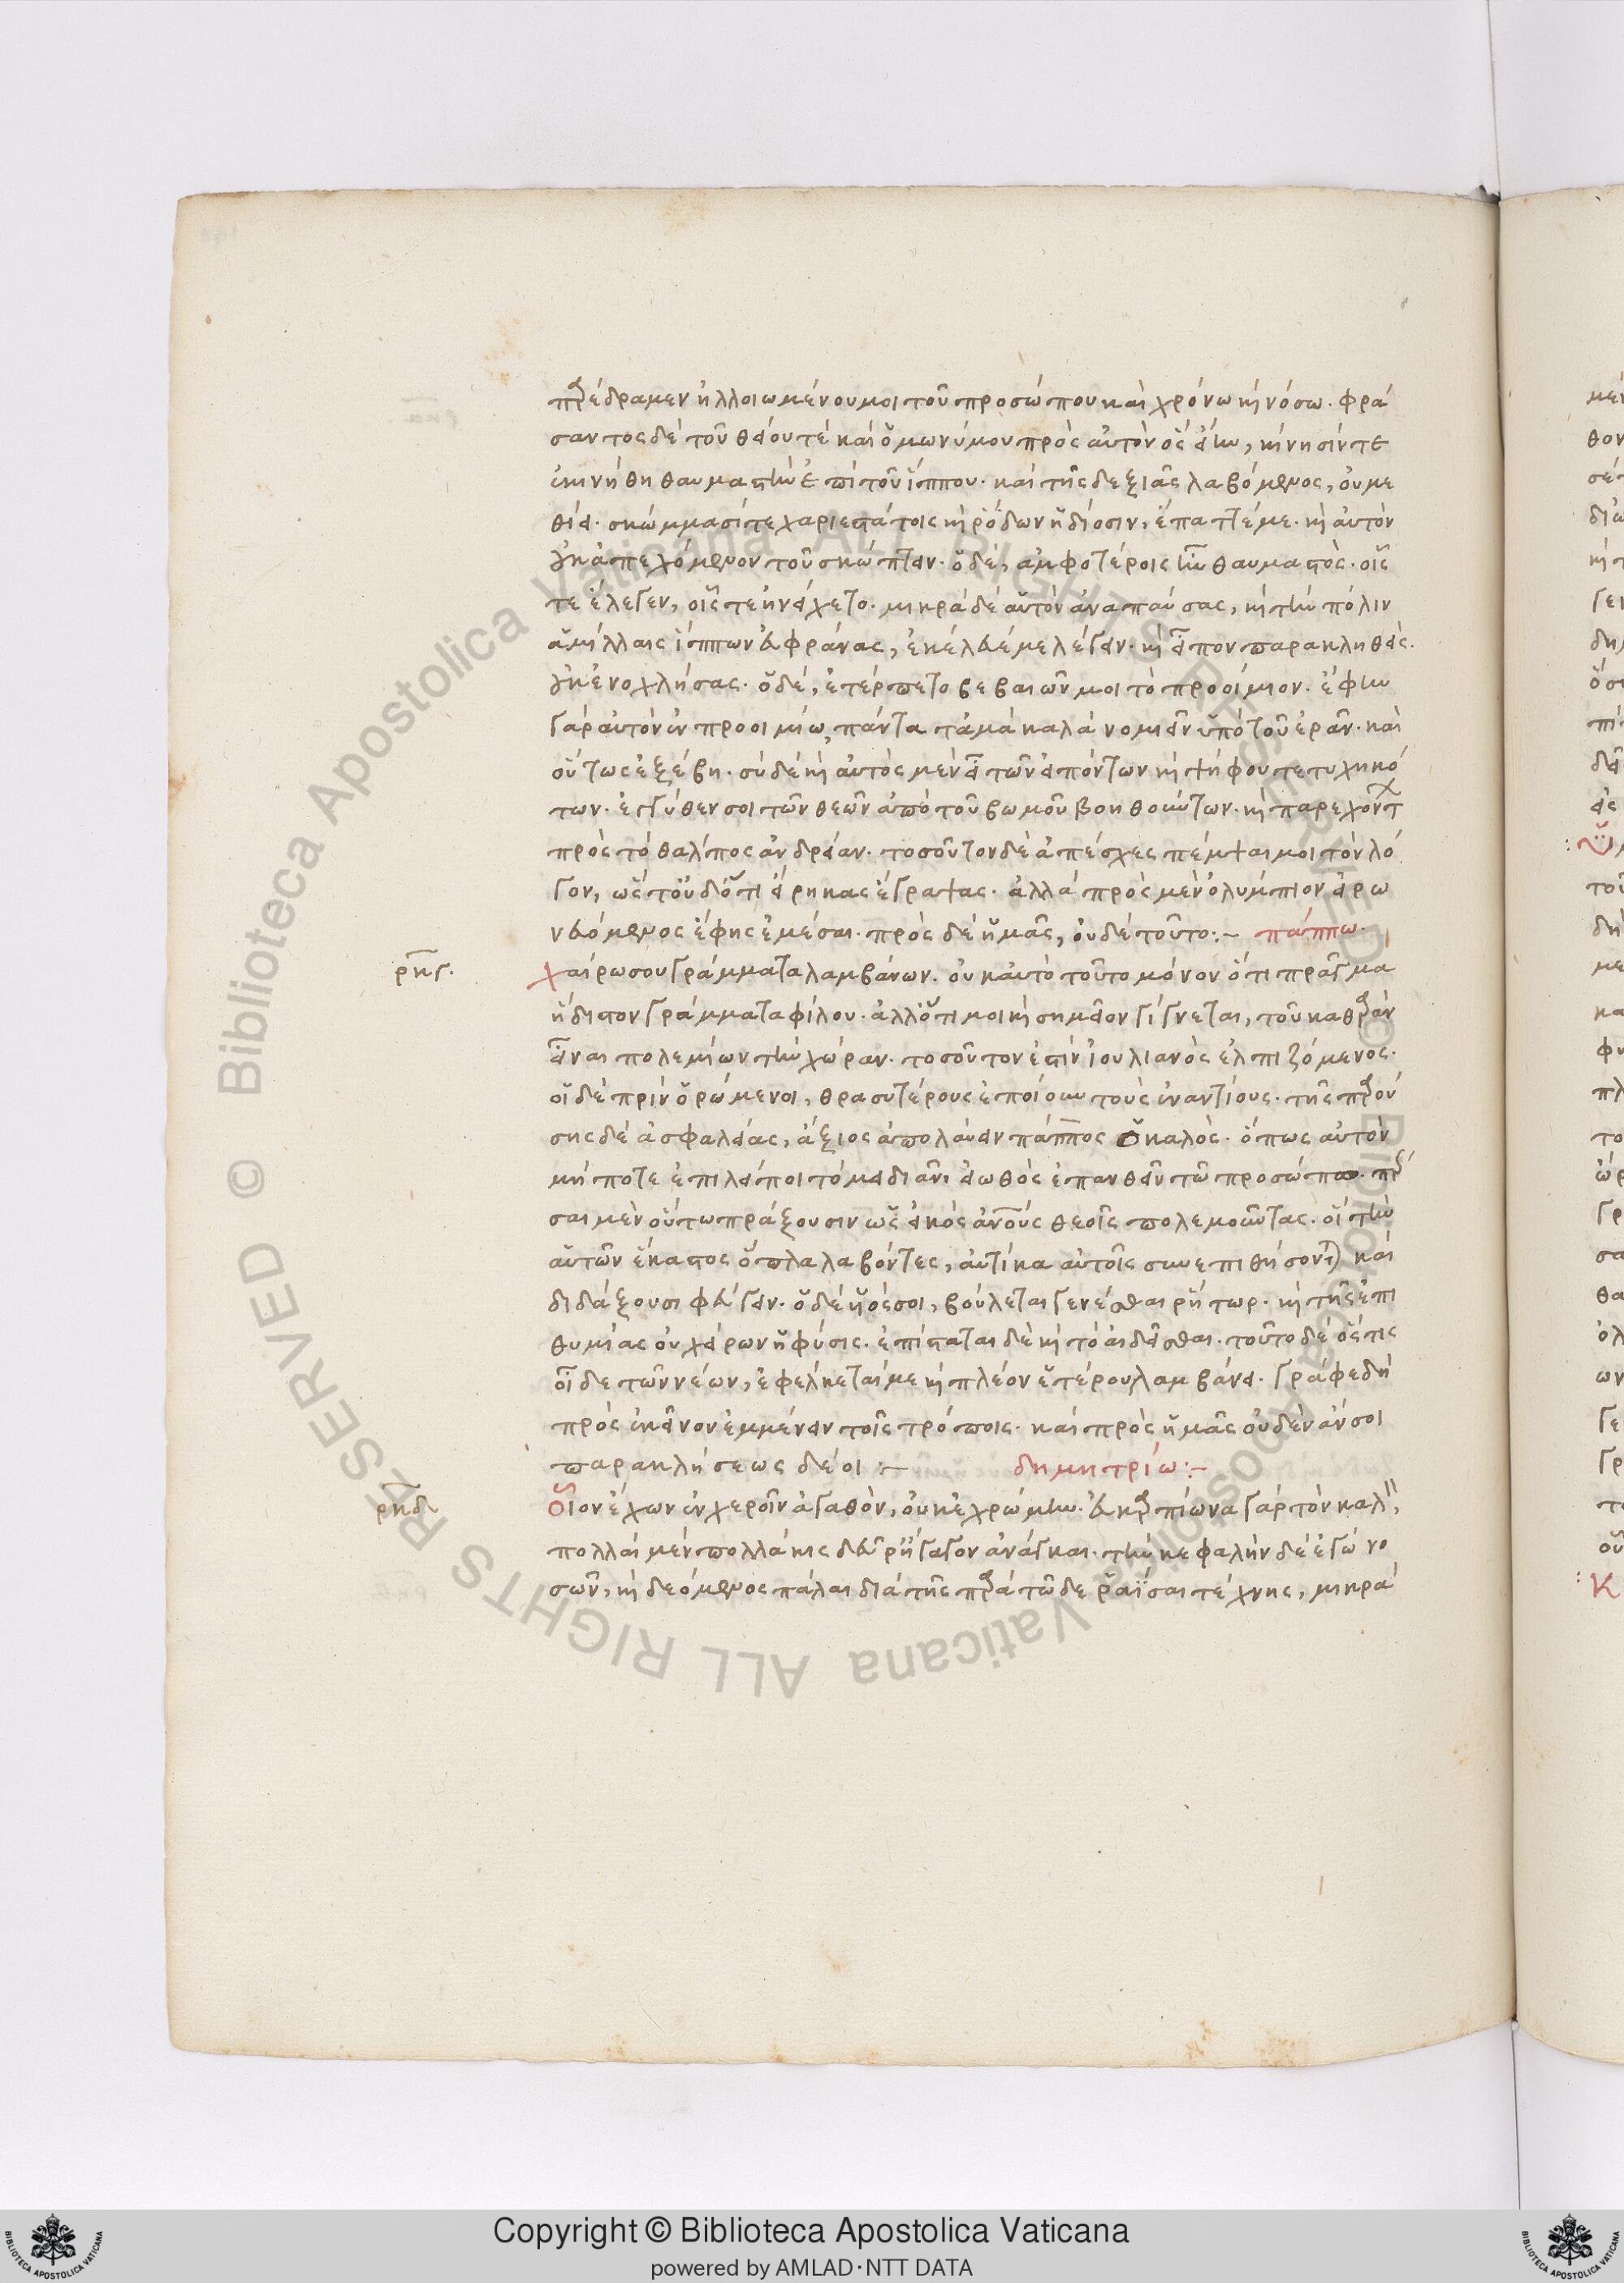 παρέδραμεν ἠλλοιωμένου μοι τοῦ προσώπου καὶ χρόνω κὶ νόσω. φρά
σαντος δὲ τοῦ θείου τὲ καὶ ὁμωνύμου πρὸς αὐτὸν ὃς εἴην, κίνησίν τε
ἐκινήθη θαυμαστὴν ἐπὶ τοῦ ἵππου. καὶ τῆς δεξιᾶς λαβόμενος, οὐ με
θίει. σκώμμασί τε χαριεστάτοις κὶ ῥόδων ἡδίοσιν, ἔπαττέ με. κὶ αὐτὸν
οὐκ ἀπεχόμενον τοῦ σκώπτειν. ὁ δὲ, ἀμφοτέροις ἦν θαυμαστὸς. οἷς
τε ἔλεγεν, οἷς τε ἠνείχετο. μικρὰ δὲ αὑτὸν ἀναπαύσας, κὶ τὴν πόλιν
ἁμίλλαις ἵππων εὐφράνας, ἐκέλευέ με λέγειν. κὶ εἶπον παρακληθείς.
οὐκ ἐνοχλήσας. ὁ δὲ, ἐτέρπετο βεβαιῶν μοι τὸ προοίμιον. ἔφην
γὰρ αὐτὸν ἐν προοιμίω, πάντα τἀμὰ καλὰ νομιεῖν ὑπὸ τοῦ ἐρᾶν. καὶ
οὕτως ἐξέβη. σὺ δὲ κὶ αὐτὸς μὲν εἶ τῶν εἰπόντων κὶ ψήφου τετυχηκό
των. ἐγγύθεν σοι τῶν θεῶν ἀπὸ τοῦ βωμοῦ βοηθούντων. κὶ παρεχόντ
πρὸς τὸ θαλίπος ἀνδρείαν. τοσοῦτον δὲ ἀπέσχες πέμψαι μοι τὸν λό
γον, ὡς τοῦδ ὅτι εἴρηκας ἔγραψας. ἀλλὰ πρὸς μὲν ὀλύμπιον εἰρω
νευόμενος ἔφης ἐμέσαι. πρὸς δὲ ἡμᾶς, οὐδὲ τοῦτο:– πάππω.
ρκγ. χαίρω σου γράμματα λαμβάνων. οὐκ αὐτὸ τοῦτο μόνον ὅτι πρᾶγμα
ἥδιστον γράμματα φίλου. ἀλλ ὅτι μοι κὶ σημεῖον γίγνεται, τοῦ καθαρὰν
εἶναι πολεμίων τὴν χώραν. τοσοῦτον ἐστὶν ἰουλιανὸς ἐλπιζόμενος.
οἱ δὲ πρὶν ὁρώμενοι, θρασυτέρους ἐποίουν τοὺς ἐναντίους. τῆς παρού
σης δὲ ἀσφαλείας, ἄξιος ἀπολαύειν πάππος ὁ καλὸς. ὅπως αὐτὸν
μή ποτε ἐπιλείποι τὸ μειδιᾶν, εἰωθὸς ἐπανθεῖν τῶ προσώπω. πέρ
σαι μὲν οὕτω πράξουσιν ὡς εἰκὸς ἀνους θεοῖς πολεμοῦντας. οἱ τὴν
αὑτῶν ἕκαστος ὅπλα λαβόντες, αὐτίκα αὐτοῖς συνεπιθήσονται καὶ
διδάξουσι φεύγειν. ὁ δὲ ὑός σοι, βούλεται γενέσθαι ῥήτωρ. κὶ τῆς ἐπι
θυμίας οὐ χείρων ἡ φύσις. ἐπίσταται δὲ κὶ τὸ αἰδεῖσθαι. τοῦτο δὲ ὅστις
οἶδε τῶν νέων, ἐφέλκεταί με κὶ πλέον ἑτέρου λαμβάνει. γράφε δὴ
πρὸς ἐκεῖνον ἐμμένειν τοῖς τρόποις. καὶ πρὸς ἡμᾶς οὐδὲν ἄν σοι
παρακλήσεως δέοι :– δημητρίω:–
ρκδ οἷον ἔχων ἐν χεροῖν ἀγαθὸν, οὐκ ἐχρώμην. εὐκαρπίωνα γὰρ τὸν καλ,
πολλαὶ μὲν πολλάκις δεῦρ ἤγαγον ἀνάγκαι. τὴν κεφαλὴν δὲ ἐγὼ νο
σῶν, κὶ δεόμενος πάλαι διὰ τῆς παρὰ τῶδε ῥαΐσαι τέχνης, μικρὰ
Copyright © Biblioteca Apostolica Vaticana
powered by AMLAD·NTT DATA